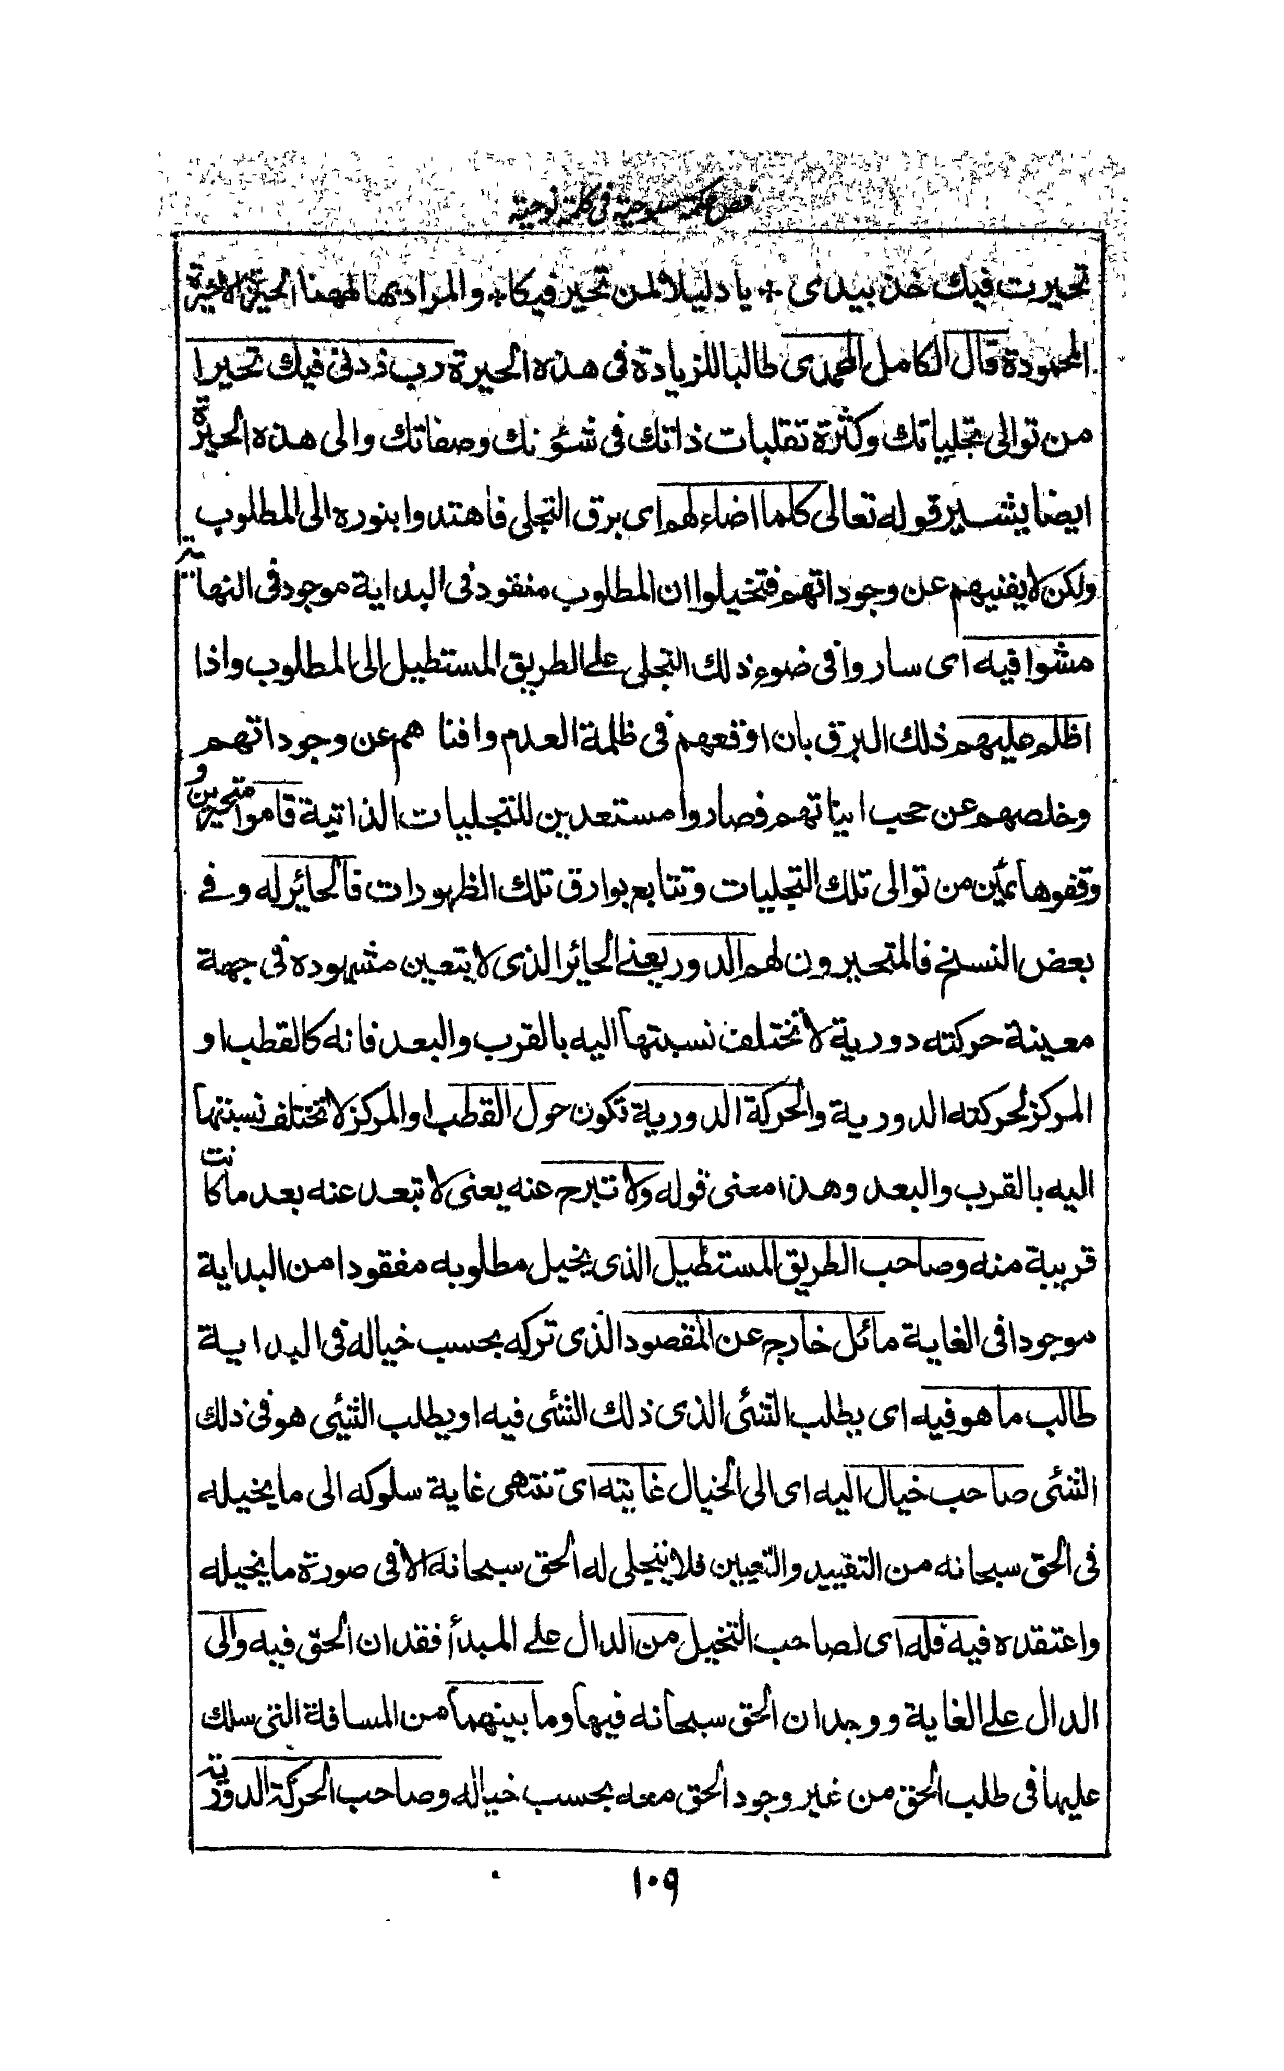 فص حكمة سبوحية فى كلمة نوحية
تحيرت فيك خذ بيدى * يا دليلا لمن تحير فيكا * والمراد بها ههنا الحيرة الاخيرة
المحمودة قال الكامل المحمدى طالبا للزيادة فى هذه الحيرة رب زدنى فيك تحيرا
من توالى تجلياتك وكثرة تقلبات ذاتك فى شئونك وصفاتك والى هذه الحيرة
ايضا يشير قوله تعالى كلما اضاء لهم اى برق التجلى فاهتدوا بنوره الى المطلوب
ولكن لا يفنيهم عن وجوداتهم فتخيلوا ان المطلوب مفقود فى البداية موجود فى النهاية
مشوا فيه اى ساروا فى ضوء ذلك التجلى على الطريق المستطيل الى المطلوب واذا
اظلم عليهم ذلك البرق بان اوقعهم فى ظلمة العدم وافناهم عن وجوداتهم
وخلصهم عن حجب انياتهم فصاروا مستعدين للتجليات الذاتية قاموا متحيرين و
وقفوا هائمين من توالى تلك التجليات وتتابع بوارق تلك الظهورات فالحائر له وفى
بعض النسخ فالمتحيرون لهم الدور يعنى الحائر الذى لا يتعين مشهوده فى جهة
معينة حركته دورية لا تختلف نسبتها اليه بالقرب والبعد فانه كالقطب او
المركز لحركته الدورية والحركة الدورية تكون حول القطب او المركز لا تختلف نسبتها
اليه بالقرب والبعد وهذا معنى قوله ولا تبرح عنه يعنى لا تبعد عنه بعد ما كانت
قريبة منه وصاحب الطريق المستطيل الذى يخيل مطلوبه مفقودا من البداية
موجودا فى الغاية مائل خارج عن المقصود الذى تركه بحسب خياله فى البداية
طالب ما هو فيه اى يطلب الشئ الذى ذلك الشئ فيه او يطلب الشئ هو فى ذلك
الشئ صاحب خيال اليه اى الى الخيال غايته اى تنتهى غاية سلوكه الى ما يخيله
فى الحق سبحانه من التقييد والتعيين فلا يتجلى له الحق سبحانه الا فى صورة ما يخيله
واعتقده فيه فله اى لصاحب التخيل من الدال على المبدأ فقدان الحق فيه والى
الدال على الغاية ووجدان الحق سبحانه فيها وما بينهما من المسافة التى سلك
عليها فى طلب الحق من غير وجود الحق معه بحسب خياله وصاحب الحركة الدورية
١٠٩